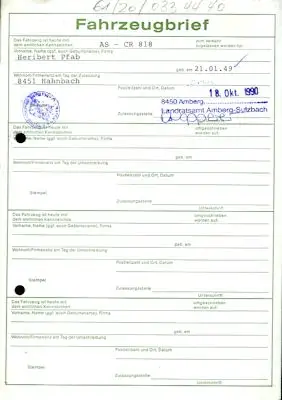 61/20/033 44 40
Fahrzeugbrief
Das Fahrzeug ist heute mit dem amtlichen Kennzeichen AS - CR 818 zum Verkehr zugelassen worden für
Vorname, Name (ggf. auch Geburtsname), Firma
Heribert Pfab geb. am 21.01.49
Wohnort/Firmensitz am Tag der Zulassung
8451 Hahnbach
Postleitzahl und Ort, Datum
18. Okt. 1990
8450 Amberg
Zulassungsstelle Landratsamt Amberg-Sulzbach
Das Fahrzeug ist heute mit dem amtlichen Kennzeichen umgeschrieben worden auf
Vorname, Name (ggf. auch Geburtsname), Firma
geb. am
Wohnort/Firmensitz am Tag der Umschreibung
Postleitzahl und Ort, Datum
Stempel Zulassungsstelle
Unterschrift
Das Fahrzeug ist heute mit dem amtlichen Kennzeichen umgeschrieben worden auf
Vorname, Name (ggf. auch Geburtsname), Firma
geb. am
Wohnort/Firmensitz am Tag der Umschreibung
Postleitzahl und Ort, Datum
Stempel Zulassungsstelle
Unterschrift
Das Fahrzeug ist heute mit dem amtlichen Kennzeichen umgeschrieben worden auf
Vorname, Name (ggf. auch Geburtsname), Firma
geb. am
Wohnort/Firmensitz am Tag der Umschreibung
Postleitzahl und Ort, Datum
Stempel
Zulassungsstelle
Unterschrift